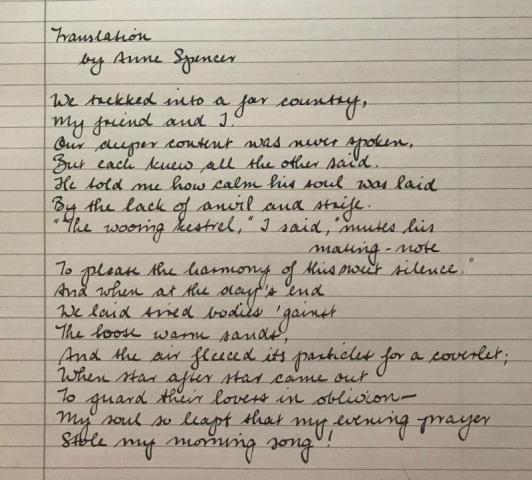 Translation
by Anne Spencer
We trekked into a far country,
My friend and I.
Our deeper content was never spoken,
But each knew all the other said.
He told me how calm his soul was laid
By the lack of anvil and strife.
"The wooing kestrel," I said, "mutes his
mating-note
To please the harmony of this sweet silence."
And when at the day's end
We laid tired bodies 'gainst
The loose warm sands,
And the air fleeced its particles for a coverlet;
When star after star came out
To guard their lovers in oblivion—
My soul so leapt that my evening prayer
Stole my morning song!